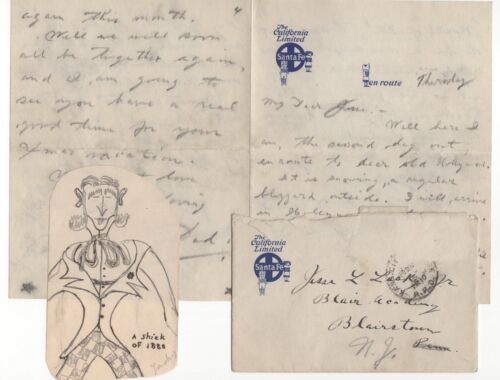 again this month.
4
Well we will soon
all be together again,
and I am going to
see you have a real
good time for your
Xmas vacation.
love
Dad
The
California
Limited
Santa Fe
en route
Thursday
My Dear Jesse:-
Well here I
am, the second day out,
enroute to dear old Hollywood.
It is snowing, a regular
blizzard outside. I will arrive
in
The
California
Limited
Santa Fe
Jesse L L Jr
Blair Academy
Blairstown
N. J. Penn.
A SHIEK
OF 1880